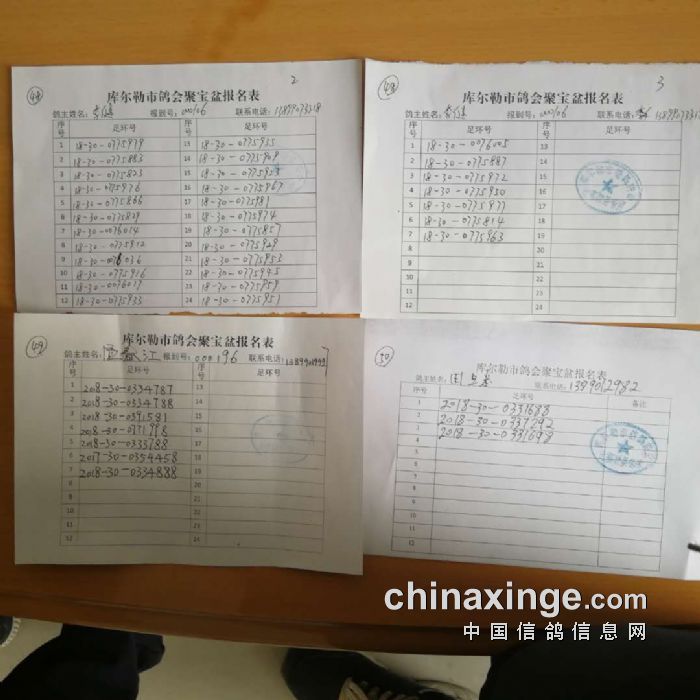 48
2
库尔勒市鸽会聚宝盆报名表
鸽主姓名: 报副号: 000106 联系电话:
序号 足环号 序号 足环号
1 18-30-0775979 13 18-30-0775935
2 18-30-0775883 14 18-30-0775909
3 18-30-0775823 15 18-30-0775923
4 18-30-0775976 16 18-30-0775967
5 18-30-0775866 17 18-30-0775981
6 18-30-0775829 18 18-30-0775974
7 18-30-0076014 19 18-30-0775857
8 18-30-0775912 20 18-30-0775929
9 18-30-0076036 21 18-30-0775953
10 18-30-0775916 22 18-30-0775945
11 18-30-0076017 23 18-30-0775959
12 18-30-0775933 24 18-30-0775951
48
3
库尔勒市鸽会聚宝盆报名表
鸽主姓名: 报副号: 000106 联系电话:
序号 足环号 序号 足环号
1 18-30-0076005 13
2 18-30-0775887 14
3 18-30-0775972 15
4 18-30-0775950 16
5 18-30-0775977 17
6 18-30-0775814 18
7 18-30-0775963 19
8 20
9 21
10 22
11 23
12 24
49
库尔勒市鸽会聚宝盆报名表
鸽主姓名: 江 报副号: 000196 联系电话:
序号 足环号 序号 足环号
1 2018-30-0334787 13
2 2018-30-0334788 14
3 2018-30-0391581 15
4 2018-30-0771998 16
5 2018-30-0333788 17
6 2017-30-0354458 18
7 2018-30-0334888 19
8 20
9 21
10 22
11 23
12 24
50
库尔勒市鸽会聚宝盆报名表
鸽主姓名: 联系电话: 1399012982
序号 足环号 备注
1 2018-30-0331688
2 2018-30-0337292
3 2018-30-0331698
4
5
6
7
8
9
10
11
12
chinaxinge.com
中国信鸽信息网